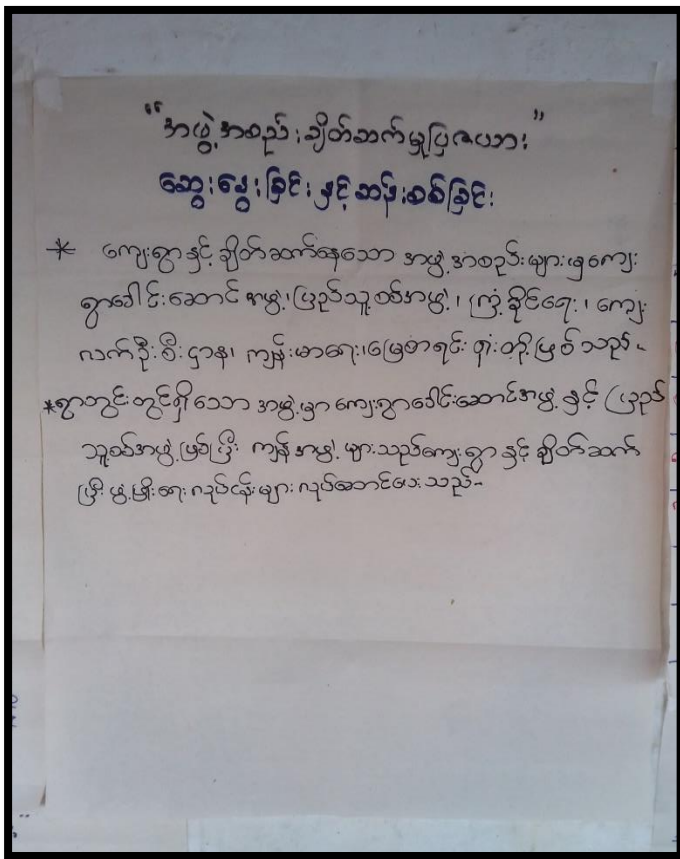 "အဖွဲ့အစည်းချိတ်ဆက်မှုပြဇယား"
ဆွေးနွေးခြင်းနှင့်ဆန်းစစ်ခြင်း
* ကျေးရွာနှင့်ချိတ်ဆက်နေသော အဖွဲ့အစည်းများမှကျေး
ရွာခေါင်းဆောင်အဖွဲ့၊ပြည်သူ့စစ်အဖွဲ့၊ ကြံ့ခိုင်ရေး၊ ကျေး
လက်ဦးစီးဌာန၊ ကျန်းမာရေး၊မြေစာရင်းရုံးတို့ဖြစ်သည်-
*ရွာတွင်းတွင်ရှိသော အဖွဲ့မှာ ကျေးရွာခေါင်းဆောင်အဖွဲ့ နှင့် ပြည်
သူ့စစ်အဖွဲ့ဖြစ်ပြီး ကျန်အဖွဲ့များသည်ကျေးရွာနှင့်ချိတ်ဆက်
ပြီးဖွံ့ဖြိုးရေးလုပ်ငန်းများ လုပ်ဆောင်ပေးသည်-